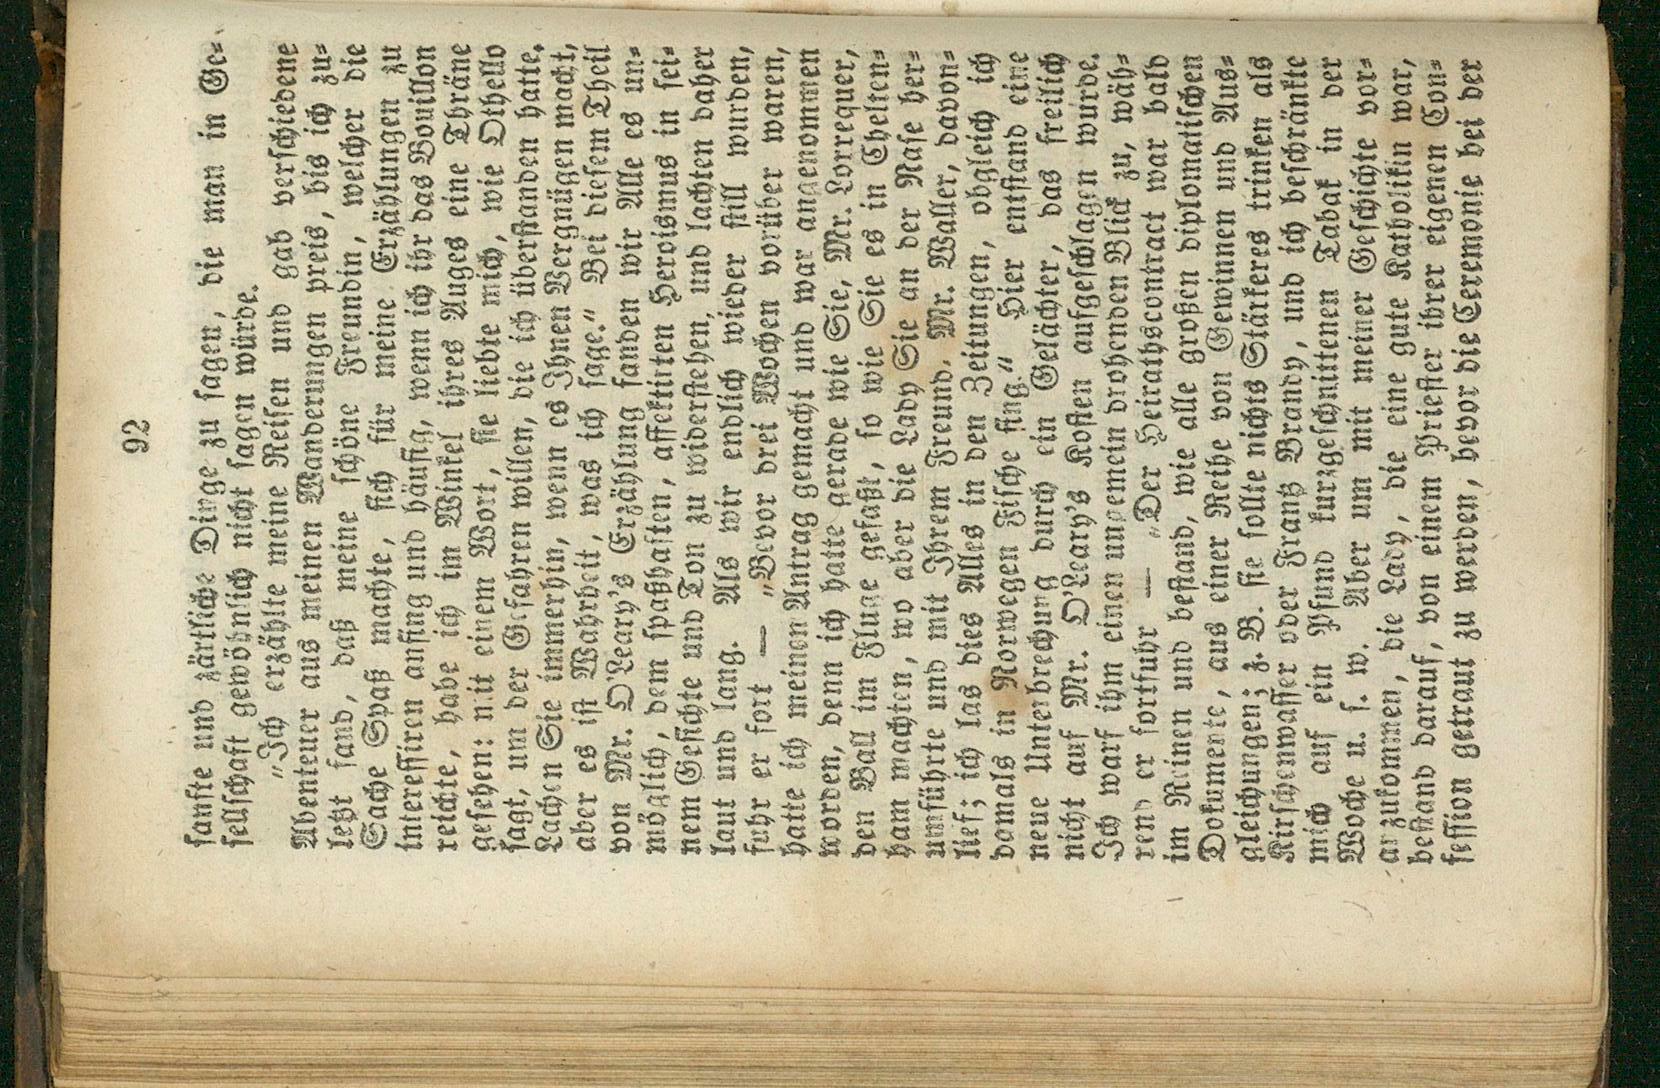 92
sanfte und zärtliche Dinge zu sagen, die man in Ge-
sellschaft gewöhnlich nicht sagen würde.
„Ich erzählte meine Reisen und gab verschiedene
Abenteuer aus meinen Wanderungen preis, bis ich zu-
letzt fand, daß meine schöne Freundin, welcher die
Sache Spaß machte, sich für meine Erzählungen zu
interessiren anfing und häufig, wenn ich ihr das Bouillon
reichte, habe ich im Winkel ihres Auges eine Thräne
gesehen: mit einem Wort, sie liebte mich, wie Othello
sagt, um der Gefahren willen, die ich überstanden hatte.
Lachen Sie immerhin, wenn es Ihnen Vergnügen macht,
aber es ist Wahrheit, was ich sage.“ Bei diesem Theil
von Mr. O'Leary's Erzählung fanden wir Alle es un-
möglich, dem spaßhaften, affektirten Heroismus in sei-
nem Gesichte und Ton zu widerstehen, und lachten daher
laut und lang. Als wir endlich wieder still wurden,
fuhr er fort — „Bevor drei Wochen vorüber waren,
hatte ich meinen Antrag gemacht und war angenommen
worden, denn ich hatte gerade wie Sie, Mr. Lorrequer,
den Ball im Fluge gefaßt, so wie Sie es in Chelten-
ham machten, wo aber die Lady Sie an der Nase her-
umführte und mit Ihrem Freund, Mr. Waller, davon-
lief; ich las dies Alles in den Zeitungen, obgleich ich
damals in Norwegen Fische fing.“ Hier entstand eine
neue Unterbrechung durch ein Gelächter, das freilich
nicht auf Mr. O'Leary's Kosten aufgeschlagen wurde.
Ich warf ihm einen ungemein drohenden Blick zu, wäh-
rend er fortfuhr — „Der Heirathscontract war bald
im Reinen und bestand, wie alle großen diplomatischen
Dokumente, aus einer Reihe von Gewinnen und Aus-
gleichungen; z. B. sie sollte nichts Stärkeres trinken als
Kirschenwasser oder Franz Brandy, und ich beschränkte
mich auf ein Pfund kurzgeschnittenen Tabak in der
Woche u. s. w. Aber um mit meiner Geschichte vor-
anzukommen, die Lady, die eine gute Katholikin war,
bestand darauf, von einem Priester ihrer eigenen Con-
fession getraut zu werden, bevor die Ceremonie bei der